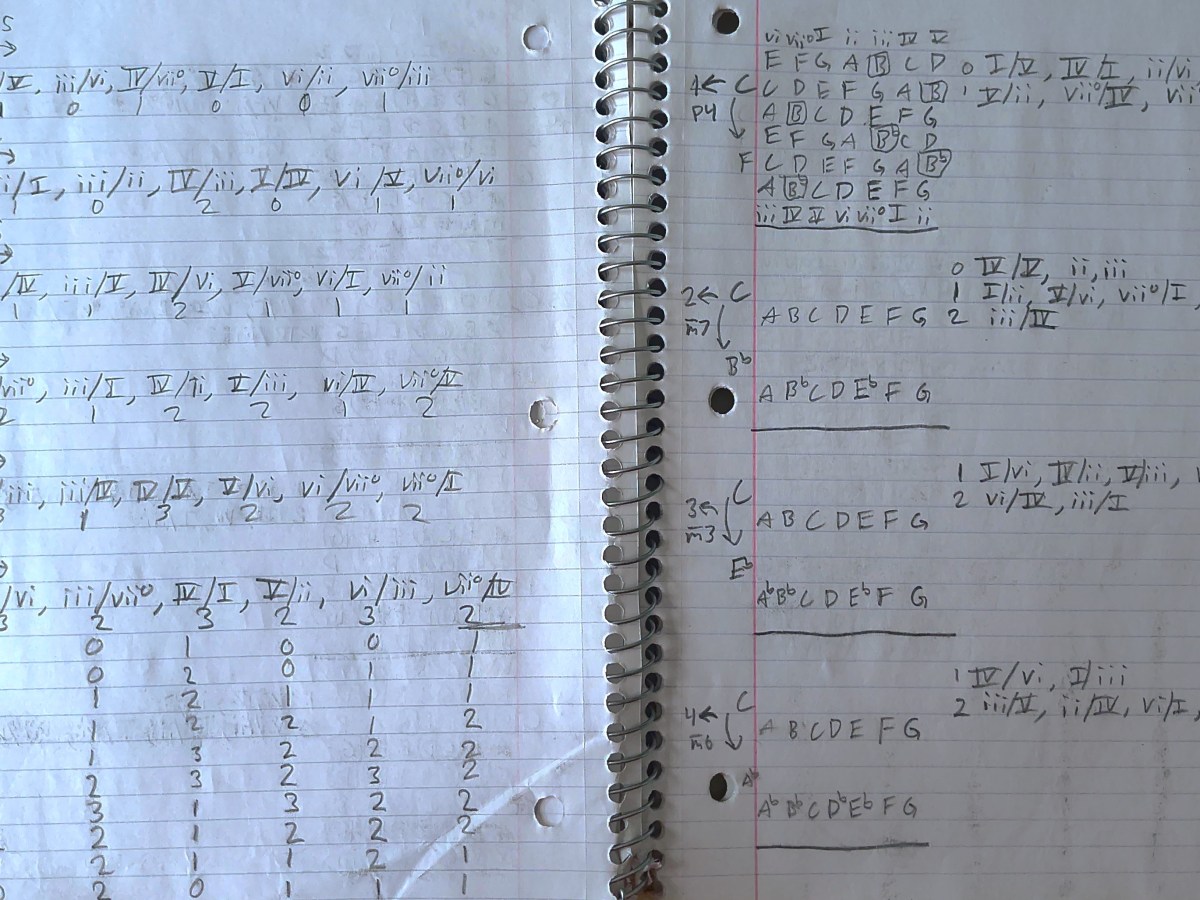 s
→
/V, iii/vi, IV/vii°, V/I, vi/ii, vii°/iii
1 0 1 0 0 1
→
i/I, iii/ii, IV/iii, V/IV, vi/V, vii°/vi
1 0 2 0 1 1
→
/IV, iii/V, IV/vi, V/vii°, vi/I, vii°/ii
1 1 2 1 1 1
→
vii°, iii/I, IV/ii, V/iii, vi/IV, vii°/V
2 1 2 2 1 2
→
iii, iii/IV, IV/V, V/vi, vi/vii°, vii°/I
3 1 3 2 2 2
→
/vi, iii/vii°, IV/I, V/ii, vi/iii, vii°/IV
3 2 3 2 3 2
0 1 0 0 1
0 2 0 1 1
1 2 1 1 1
1 2 2 1 2
1 3 2 2 2
2 3 2 3 2
3 1 3 2 2
2 1 2 2 2
2 1 1 2 1
2 0 1 1 1
vi vii° I ii iii IV V
E F G A B C D 0 I/V, IV/I, ii/vi
4← C C D E F G A B 1 V/ii, vii°/IV, vii
P4 A B C D E F G
E F G A Bb C D
F C D E F G A Bb
A Bb C D E F G
iii IV V vi vii° I ii
0 IV/V, ii,iii
2← C 1 I/ii, V/vi, vii°/I,
m7 A B C D E F G 2 iii/IV
Bb
A Bb C D Eb F G
1 I/vi, IV/ii, V/iii,
C 2 vi/IV, iii/I
3← A B C D E F G
m3
Eb
Ab Bb C D Eb F G
1 IV/vi, I/iii
C 2 iii/V, ii/IV, vi/I,
4← A B C D E F G
m6
Ab
Ab Bb C Db Eb F G